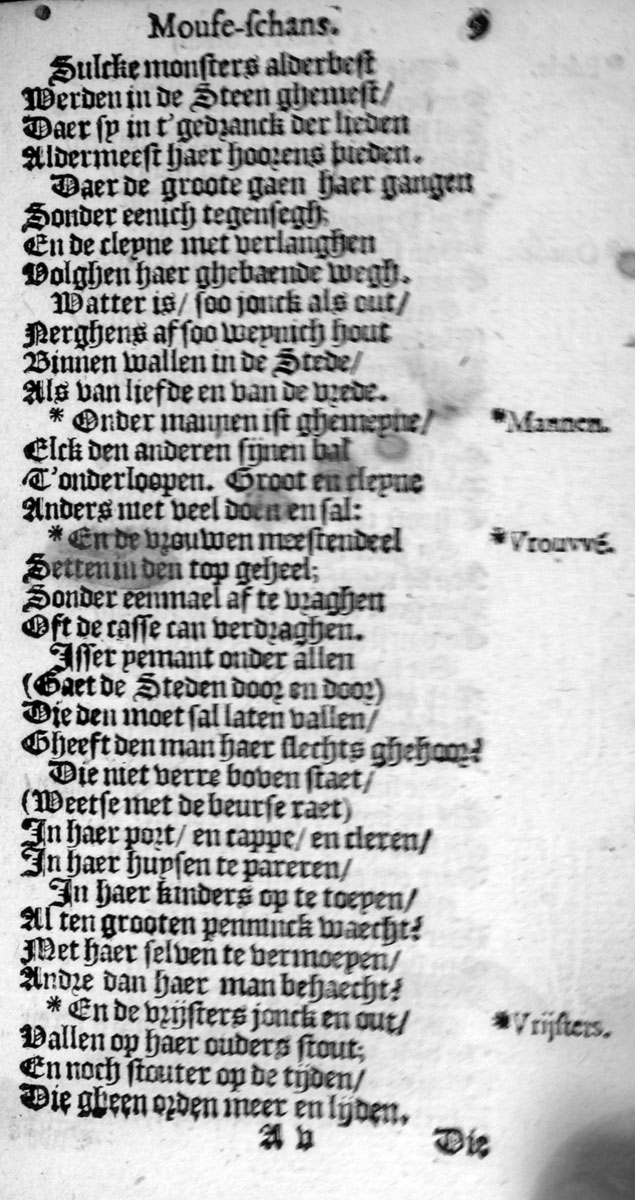 Mouse-schans. 9
Sulcke monsters alderbest
Werden in de Steen ghemest/
Daer sy in t'gedranck der lieden
Aldermeest haer hoorens bieden.
Daer de groote gaen haer gangen
Sonder eenich tegensegh;
En de cleyne met verlanghen
Volghen haer ghebaende wegh.
Watter is/ soo jonck als out/
Nerghens af soo weynich hout
Binnen wallen in de Stede/
Als van liefde en van de vrede.
* Onder mannen ist ghemeyne/ *Mannen.
Elck den anderen sijnen bal
T'onderloopen. Groot en cleyne
Anders niet veel doen en sal:
* En de vrouwen meestendeel *Vrouvvé.
Setten in den top geheel;
Sonder eenmael af te vraghen
Oft de casse can verdraghen.
Isser yemant onder allen
(Gaet de Steden door en door)
Die den moet sal laten vallen/
Gheeft den man haer slechts ghehoor?
Die niet verre boven staet/
(Weetse met de beurse raet)
In haer port/ en cappe/ en cleren/
In haer huysen te pareren/
In haer kinders op te toeyen/
Al ten grooten penninck waecht?
Met haer selven te vermoeyen/
Andre dan haer man behaecht?
* En de vrijsters jonck en out/ *Vrijsters.
Vallen op haer ouders stout;
En noch stouter op de tijden/
Die gheen orden meer en lijden.
A v Die